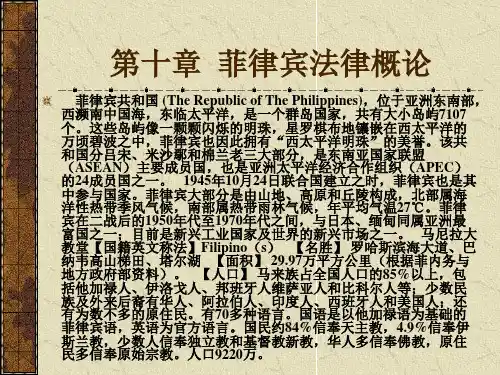 第十章 菲律宾法律概论
菲律宾共和国 (The Republic of The Philippines)，位于亚洲东南部，
西濒南中国海，东临太平洋，是一个群岛国家，共有大小岛屿7107
个。这些岛屿像一颗颗闪烁的明珠，星罗棋布地镶嵌在西太平洋的
万顷碧波之中，菲律宾也因此拥有“西太平洋明珠”的美誉。该共
和国分吕宋、米沙鄢和棉兰老三大部分，是东南亚国家联盟
（ASEAN）主要成员国，也是亚洲太平洋经济合作组织（APEC）
的24成员国之一。 1945年10月24日联合国建立之时，菲律宾也是其
中参与国家。菲律宾大部分是由山地、高原和丘陵构成，北部属海
洋性热带季风气候，南部属热带雨林气候，年平均气温27℃。 菲律
宾在二战后的1950年代至1970年代之间，与日本、缅甸同属亚洲最
富国之一；目前是新兴工业国家及世界的新兴市场之一。 马尼拉大
教堂【国籍英文称法】Filipino（s） 【名胜】 罗哈斯滨海大道、巴
纳韦高山梯田、塔尔湖 【面积】 29.97万平方公里（根据菲内务与
地方政府部资料）。 【人口】 马来族占全国人口的85%以上，包
括他加禄人、伊洛戈人、邦班牙人维萨亚人和比科尔人等；少数民
族及外来后裔有华人、阿拉伯人、印度人、西班牙人和美国人；还
有为数不多的原住民。有70多种语言。国语是以他加禄语为基础的
菲律宾语，英语为官方语言。国民约84%信奉天主教，4.9%信奉伊
斯兰教，少数人信奉独立教和基督教新教，华人多信奉佛教，原住
民多信奉原始宗教。人口9220万。